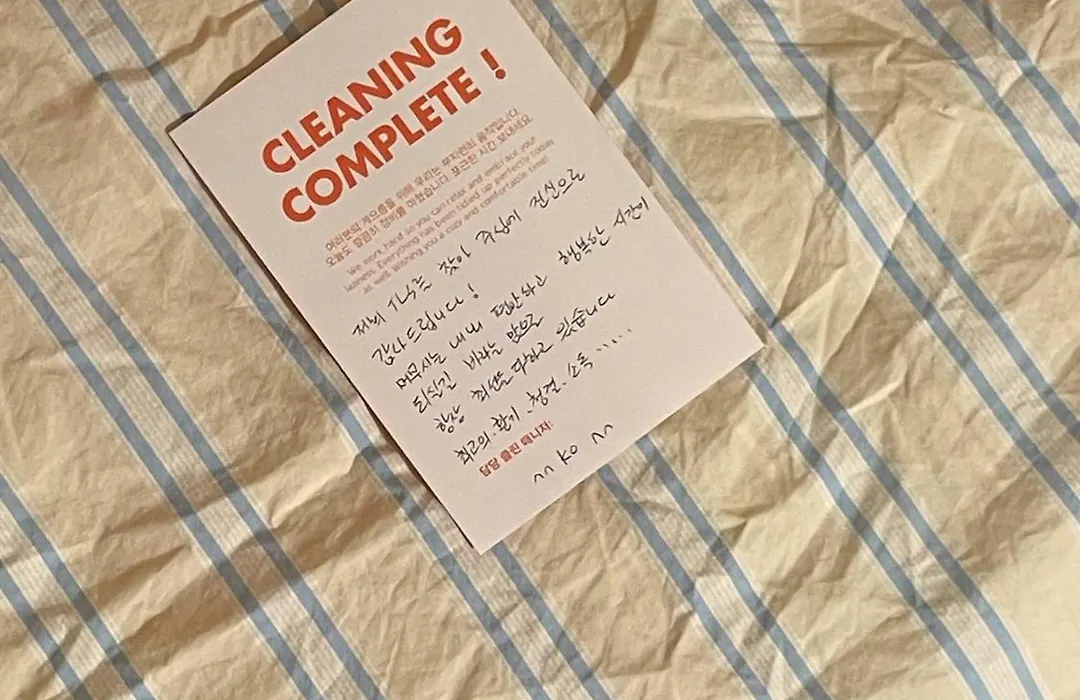 CLEANING
COMPLETE !
여러분의 게으름을 위해 우리는 부지런히 움직입니다.
오늘도 깔끔히 정비를 마쳤습니다. 포근한 시간 보내세요
We work hard so you can relax and embrace your
laziness. Everything has been tidied up perfectly today
as well. Wishing you a cozy and comfortable time!
저희 찾아 주심에 진심으로
감사드립니다 !
머무시는 내내 편안하고 행복한 시간이
되시길 바라는 맘으로
항상 최선을 다하고 있습니다
최고의. 환기. 청결. 소독 .....
담당 클린 매니저:
^^ KO ^^